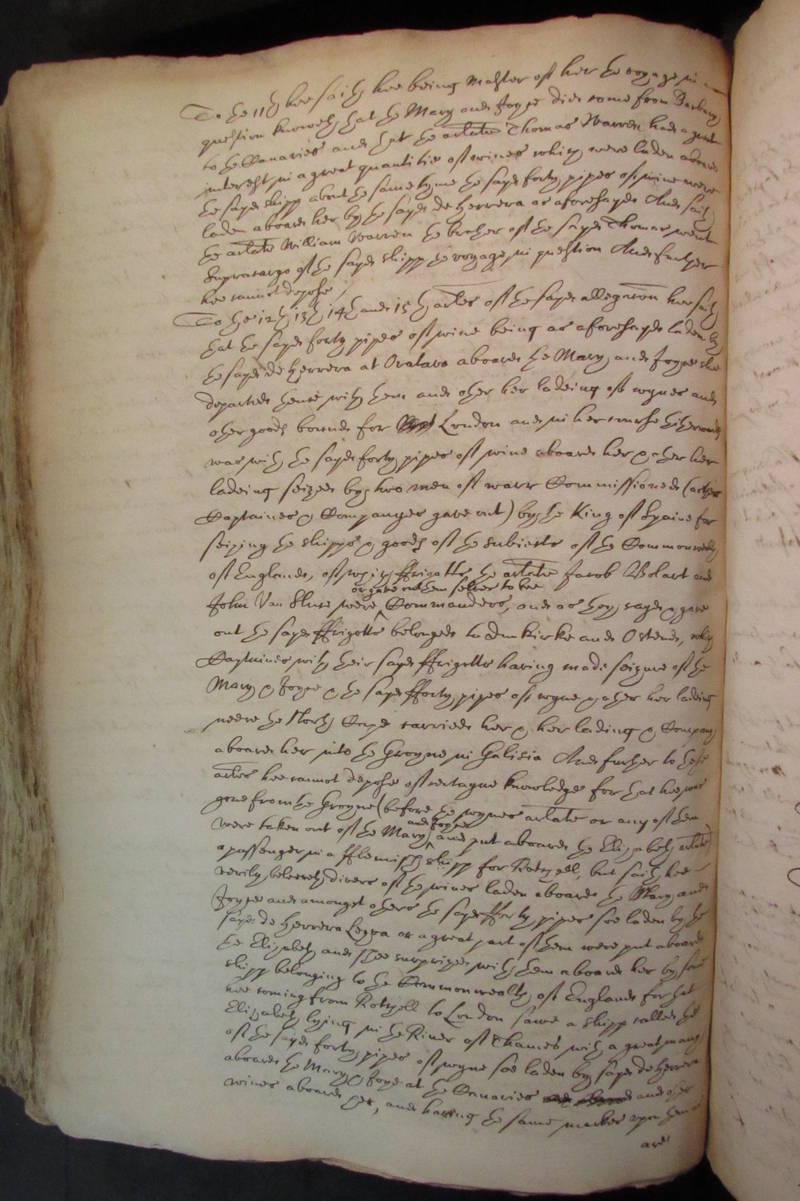 To the 11th hee saith hee being Master of her the voyage in
question knoweth that the Mary and Joyce did come from Barbary
to the Canaries and that the arlate Thomas Warren had a great
interest in a great quantitie of wines which were laden aboard
the sayd shipp about the same tyme the sayd forty pipes of wine were
laden aboard her by the sayd de Herrera as aforesayd And saith
the arlate William Warren the brother of the sayd Thomas went
Supracargo of the sayd shipp the voyage in question And further
hee cannot depose /
To the 12th 13th 14th and 15th arles of the sayd allegation hee saith
that the sayd forty pipes of wine being as aforesayd laden by
the sayd de Herrera at Oratava aboard the Mary and Joyce shee
departed thence with them and other her ladeing of wynes and
other goods bound for London and in her course thitherward
was with the sayd forty pipes of wine aboard her & other her
ladeing seized by two men of warr Commissioned (as their
Captaines & Companyes gave out) by the King of Spaine for
seizing the shipps & goods of the subiects of the Commonwealth
of England, of which ffrigotts the arlate Jacob and
or gave out them selves to bee
John Van were Commanders, and as they sayd & gave
out the sayd ffrigotts belonged to dunkirke and Ostend, which
Captaines with their sayd ffrigotts having made seizure of the
Mary & Joyce & the sayd fforty pipes of wyne & other her ladeing
neere the North Cape carried her & her lading & Company
aboard her into the Groyne in Galisia And further to these
arles hee cannot depose of certayne knowledge for that hee was
gone from the Groyne (before the wynes arlate or any of them
and Joyce
were taken out of the Mary and put aboard the Elizabeth arlate)
a passenger in a fflemish shipp for Rotchell, but saith hee
verily beleeveth divers of the wines laden aboard the Mary and
Joyce and amongst others the sayd fforty pipes soe laden by the
sayd de Herrera Leyva or a great part of them were put aboard
the Elizabeth and shee surprized with them aboard her by some
shipp belonging to the Commonwealth of England for that
hee coming from Rotchell to London sawe a shipp called the
Elizabeth lying in the River of Thames with a great many
of the sayd forty pipes of wyne soe laden by sayd de Herrera
aboard the Mary & Joyce at the Canaries and other
wines aboard her, and having the same markes upon them
are